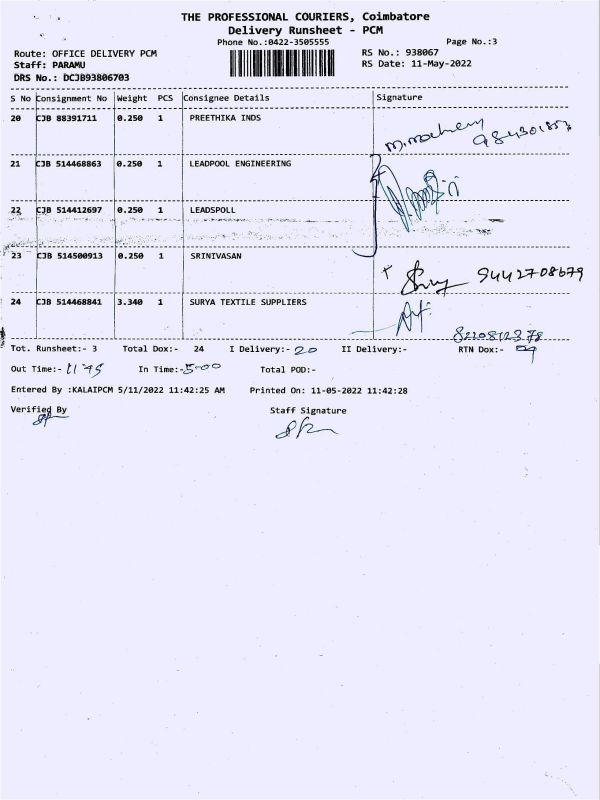 THE PROFESSIONAL COURIERS, Coimbatore
Delivery Runsheet - PCM
Phone No.:0422-3505555
Page No.:3
Route: OFFICE DELIVERY PCM
RS No.: 938067
Staff: PARAMU
RS Date: 11-May-2022
DRS No.: DCJB93806703
S No Consignment No Weight PCS Consignee Details Signature
20 CJB 88391711 0.250 1 PREETHIKA INDS
21 CJB 514468863 0.250 1 LEADPOOL ENGINEERING
22 CJB 514412697 0.250 1 LEADSPOLL
23 CJB 514500913 0.250 1 SRINIVASAN 9442708679
24 CJB 514468841 3.340 1 SURYA TEXTILE SUPPLIERS
Tot. Runsheet:- 3 Total Dox:- 24 I Delivery:- 20 II Delivery:- RTN Dox:- 04
Out Time:- 11-45 In Time:- 5-00 Total POD:-
Entered By :KALAIPCM 5/11/2022 11:42:25 AM Printed On: 11-05-2022 11:42:28
Verified By Staff Signature